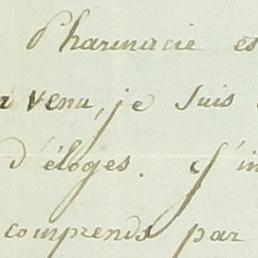 Pharmacie es
venu, je suis
d'éloges. J'in
comprends par